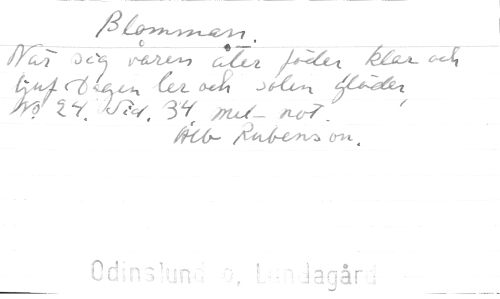 Blomman.
När sig våren åter föder klar och
ljuf Dagen ler och solen glöder,
No 24. Sid. 34. med not.
Alb Rubenson.
Odinslund o, Lundagård